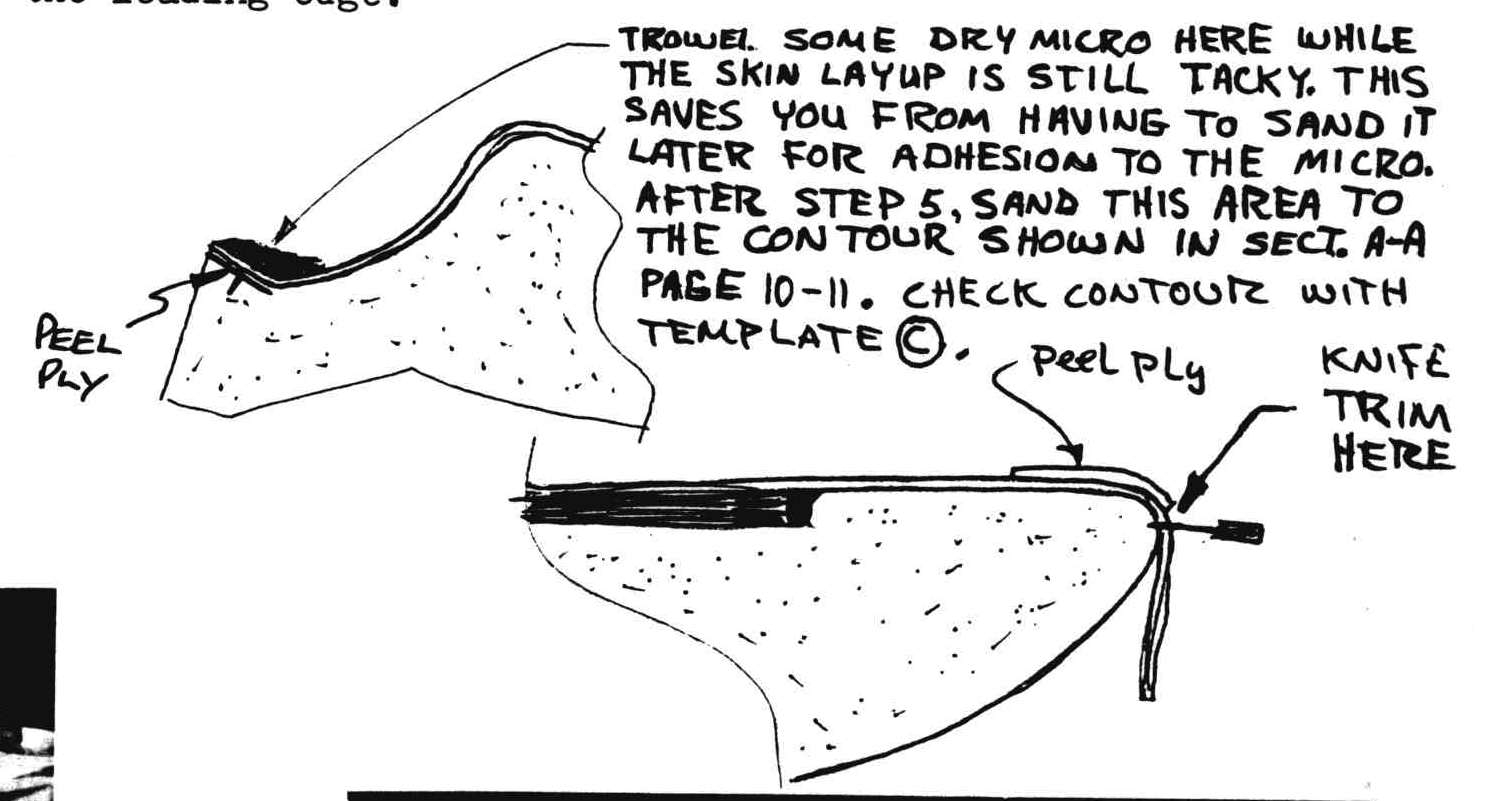 the leading edge.
TROWEL SOME DRY MICRO HERE WHILE
THE SKIN LAYUP IS STILL TACKY. THIS
SAVES YOU FROM HAVING TO SAND IT
LATER FOR ADHESION TO THE MICRO.
AFTER STEP 5, SAND THIS AREA TO
THE CONTOUR SHOWN IN SECT. A-A
PAGE 10-11. CHECK CONTOUR WITH
TEMPLATE Ⓒ.
PEEL
PLY
PEEL PLY
KNIFE
TRIM
HERE